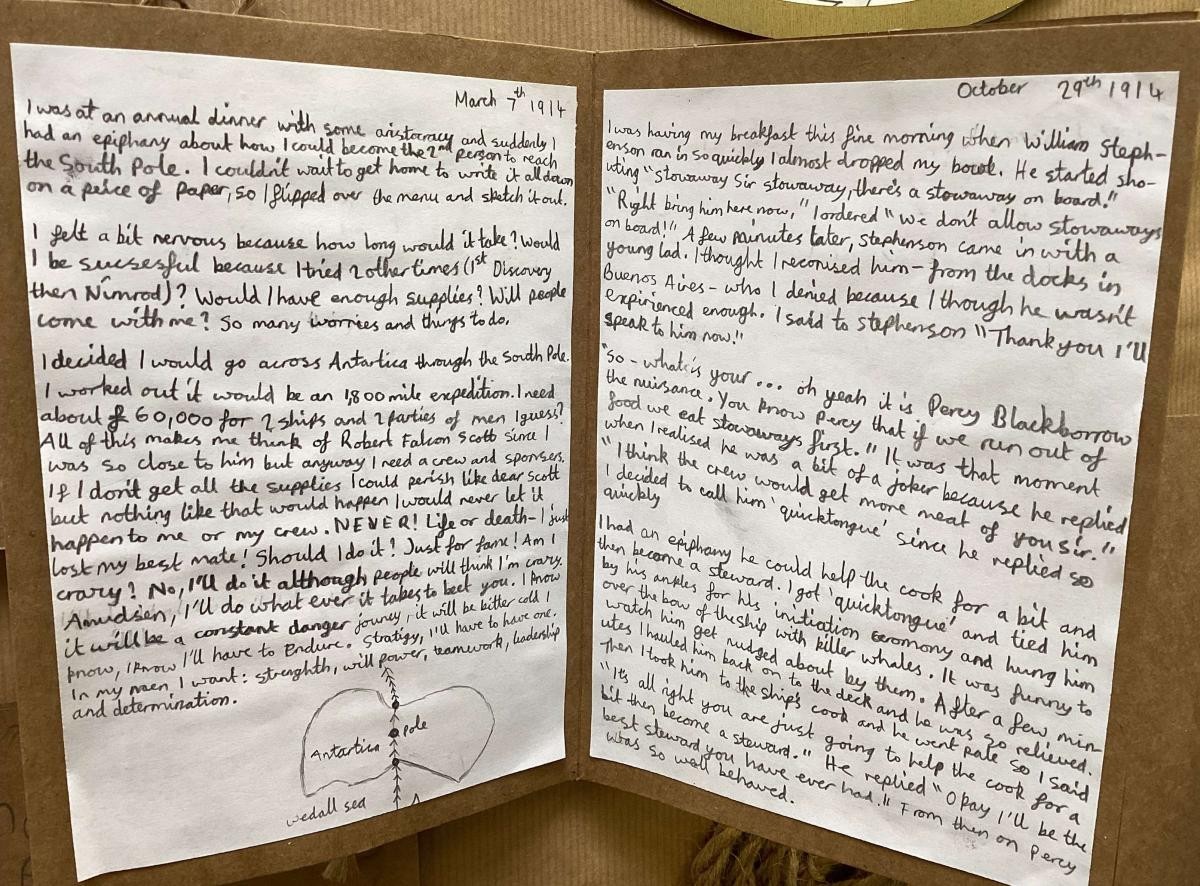 March 7th 1914
I was at an annual dinner with some aristocracy and suddenly I
had an epiphany about how I could become the 2nd person to reach
the South Pole. I couldn't wait to get home to write it all down
on a peice of paper, so I flipped over the menu and sketch it out.
I felt a bit nervous because how long would it take? Would
I be sucsesful because I tried 2 other times (1st Discovery
then Nimrod)? Would I have enough supplies? Will people
come with me? So many worries and things to do.
I decided I would go across Antartica through the South Pole.
I worked out it would be an 1,800 mile expedition. I need
about £60,000 for 2 ships and 2 parties of men I guess?
All of this makes me think of Robert Falcon Scott since I
was so close to him but anyway I need a crew and sponsers.
If I don't get all the supplies I could perish like dear Scott
but nothing like that would happen I would never let it
happen to me or my crew. NEVER! Life or death - I just
lost my best mate! Should I do it? Just for fame! Am I
crazy? No, I'll do it although people will think I'm crazy.
Amudsen, I'll do what ever it takes to beet you. I know
it will be a constant danger journey, it will be bitter cold I
know, I know I'll have to Endure. Stratigy, I'll have to have one.
In my men I want: strenghth, will power, teamwork, leadership
and determination.
Antartica
Pole
wedall sea
October 29th 1914
I was having my breakfast this fine morning when William Steph-
enson ran in so quickly I almost dropped my bowl. He started sho-
uting "Stowaway Sir stowaway, there's a stowaway on board."
"Right bring him here now," I ordered "we don't allow stowaways
on board!" A few minutes later, Stephenson came in with a
young lad. I thought I reconised him - from the docks in
Buenos Aires - who I denied because I though he wasn't
expirienced enough. I said to Stephenson "Thank you I'll
speak to him now."
"So - what's your ... oh yeah it is Percy Blackborrow
the nuisance. You know Percy that if we run out of
food we eat stowaways first." It was that moment
when I realised he was a bit of a joker because he replied
"I think the crew would get more meat of you sir."
I decided to call him 'quicktongue' since he replied so
quickly
I had an epiphany he could help the cook for a bit and
then become a steward. I got 'quicktongue' and tied him
by his ankles for his initiation ceromony and hung him
over the bow of the ship with killer whales. It was funny to
watch him get nudged about by them. After a few min-
utes I hauled him back on to the deck and he was so relieved.
Then I took him to the ship's cook and he went pale so I said
"It's all right you are just going to help the cook for a
bit then become a steward." He replied "Okay I'll be the
best steward you have ever had." From then on Percy
was so well behaved.